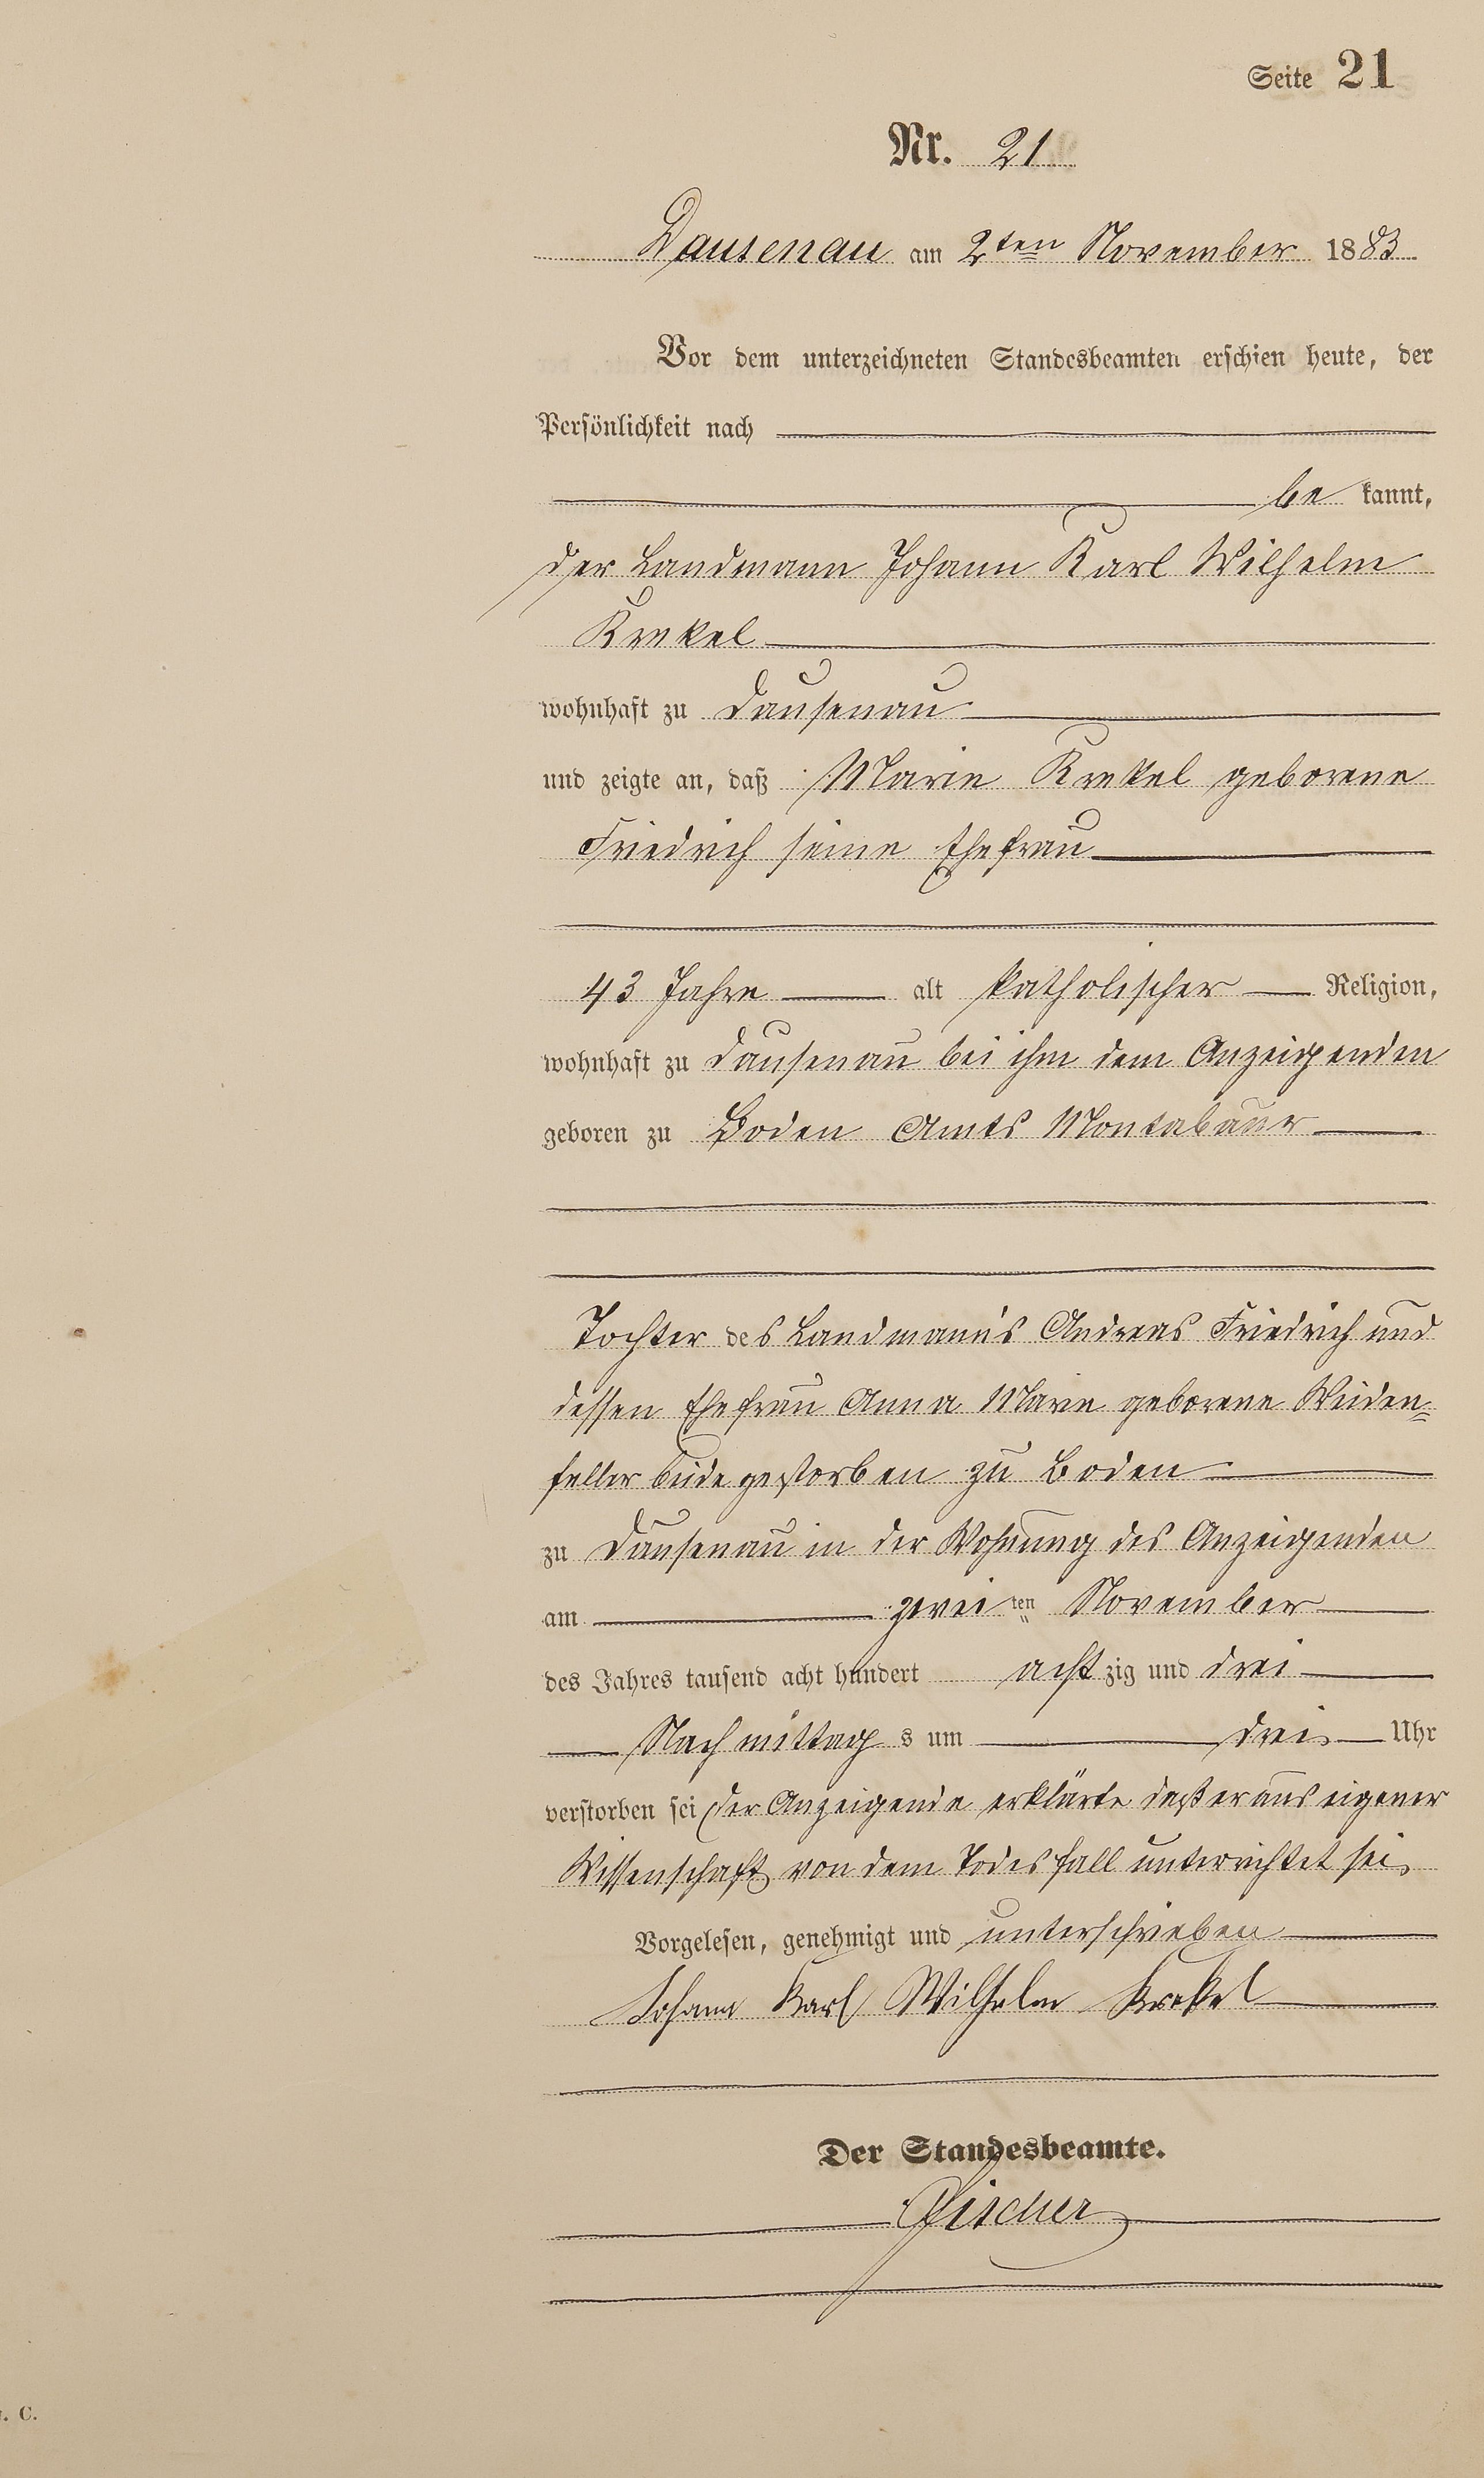 Seite 21
Nr. 21
Dausenau am 2ten November 1883
Vor dem unterzeichneten Standesbeamten erschien heute, der
Persönlichkeit nach
be kannt,
der Landmann Johann Karl Wilhelm
Krekel
wohnhaft zu Dausenau
und zeigte an, daß Marie Krekel geborene
Friedrich seine Ehefrau
43 Jahre alt katholischer Religion,
wohnhaft zu Dausenau bei ihm dem Anzeigenden
geboren zu Boden Amts Montabaur
Tochter des Landmann's Andreas Friedrich und
dessen Ehefrau Anna Marie geborene Weiden=
feller beide gestorben zu Boden
zu Dausenau in der Wohnung des Anzeigenden
am zweiten November
des Jahres tausend acht hundert achtzig und drei
Nachmittags um drei Uhr
verstorben sei der Anzeigende erklärte daß er aus eigener
Wissenschaft von dem Todesfall unterrichtet sei,
Vorgelesen, genehmigt und unterschrieben
Johann Karl Wilhelm Krekel
Der Standesbeamte.
Fischer
. C.